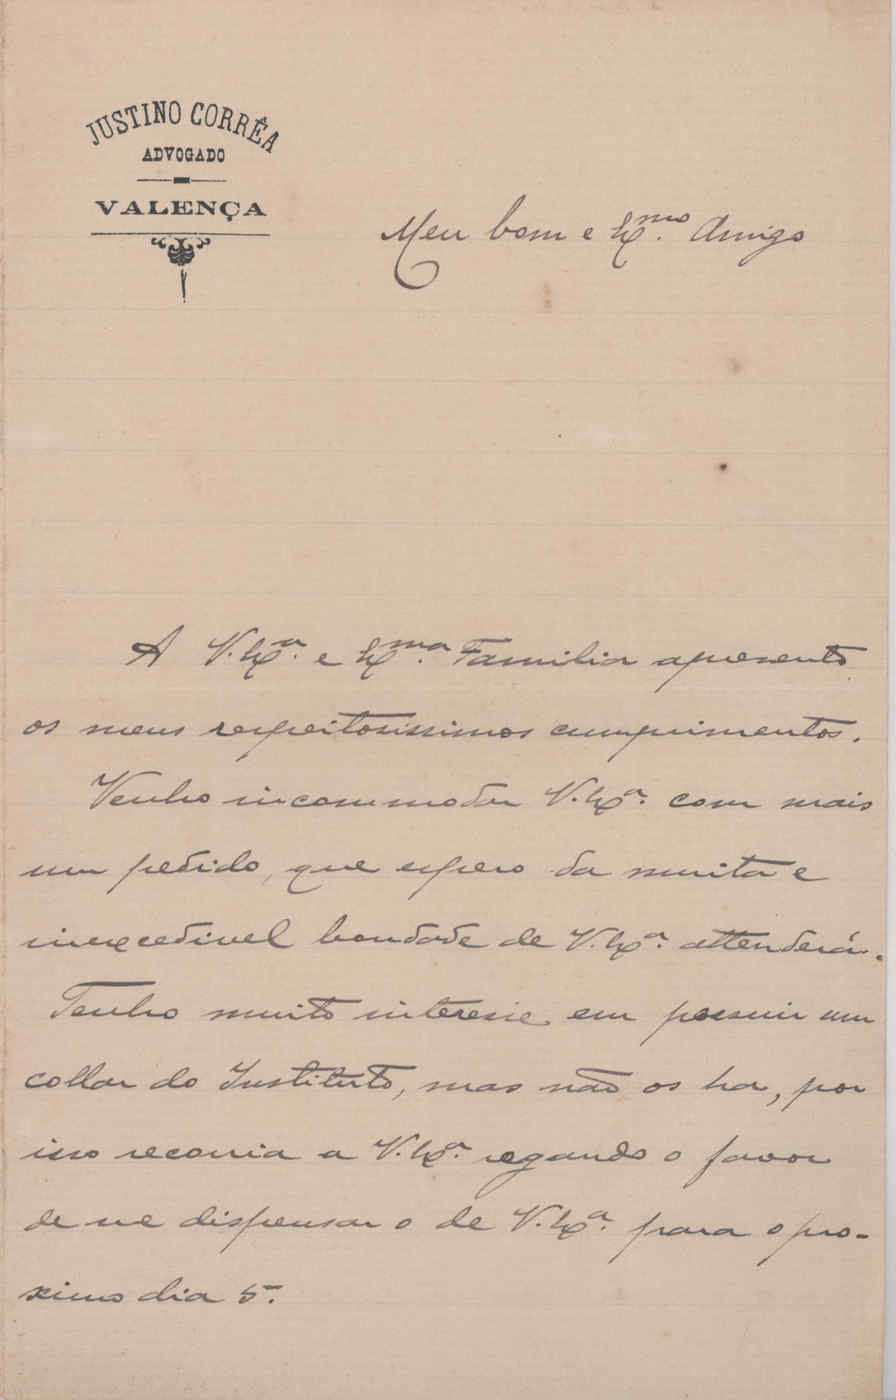 JUSTINO CORRÊA
ADVOGADO
VALENÇA
Meu bom e Exmo. Amigo
A V. Exa. e Exma. Familia apresento
os meus respeitosissimos cumprimentos.
Venho incommodar V. Exa. com mais
um pedido, que espero da muita e
inexcedivel bondade de V. Exa. attenderá.
Tenho muito interesse em possuir um
collar do Instituto, mas não os ha, por
isso recorria a V. Exa. rogando o favor
de me dispensar o de V. Exa. para o pro-
ximo dia 5.